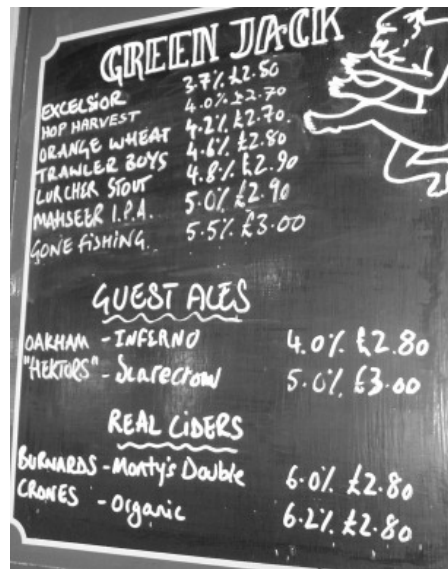 GREEN JACK
EXCELSIOR 3.7% £2.50
HOP HARVEST 4.0% £2.70
ORANGE WHEAT 4.2% £2.70.
TRAWLER BOYS 4.6% £2.80
LURCHER STOUT 4.8% £2.90
MAHSEER I.P.A. 5.0% £2.90
GONE FISHING. 5.5% £3.00
GUEST ALES
OAKHAM - INFERNO 4.0% £2.80
"HEKTORS" - Scarecrow 5.0% £3.00
REAL CIDERS
BURNARDS - Monty's Double 6.0% £2.80
CRONES - Organic 6.2% £2.80